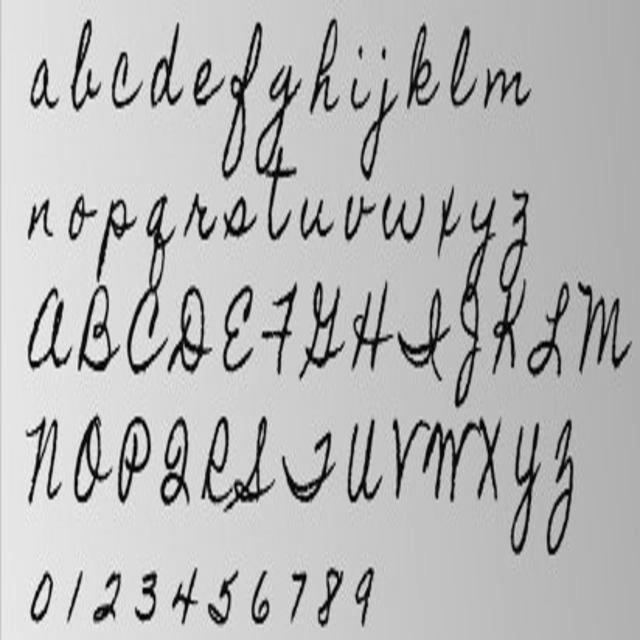 abcdefghijklm
nopqrstuvwxyz
ABCDEFGHIJKLM
NOPQRSTUVWXYZ
0123456789